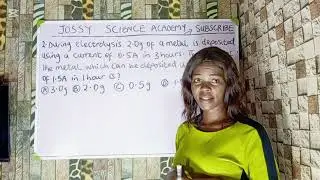 JOSSY SCIENCE ACADEMY, SUBSCRIBE
2. During electrolysis 2.0g of a metal is deposited
using a current of 0.5A in 3hours
the metal which can be deposited
of 1.5A in 1hour is?
Ⓐ 3.0g Ⓑ 2.0g Ⓒ 0.5g Ⓓ